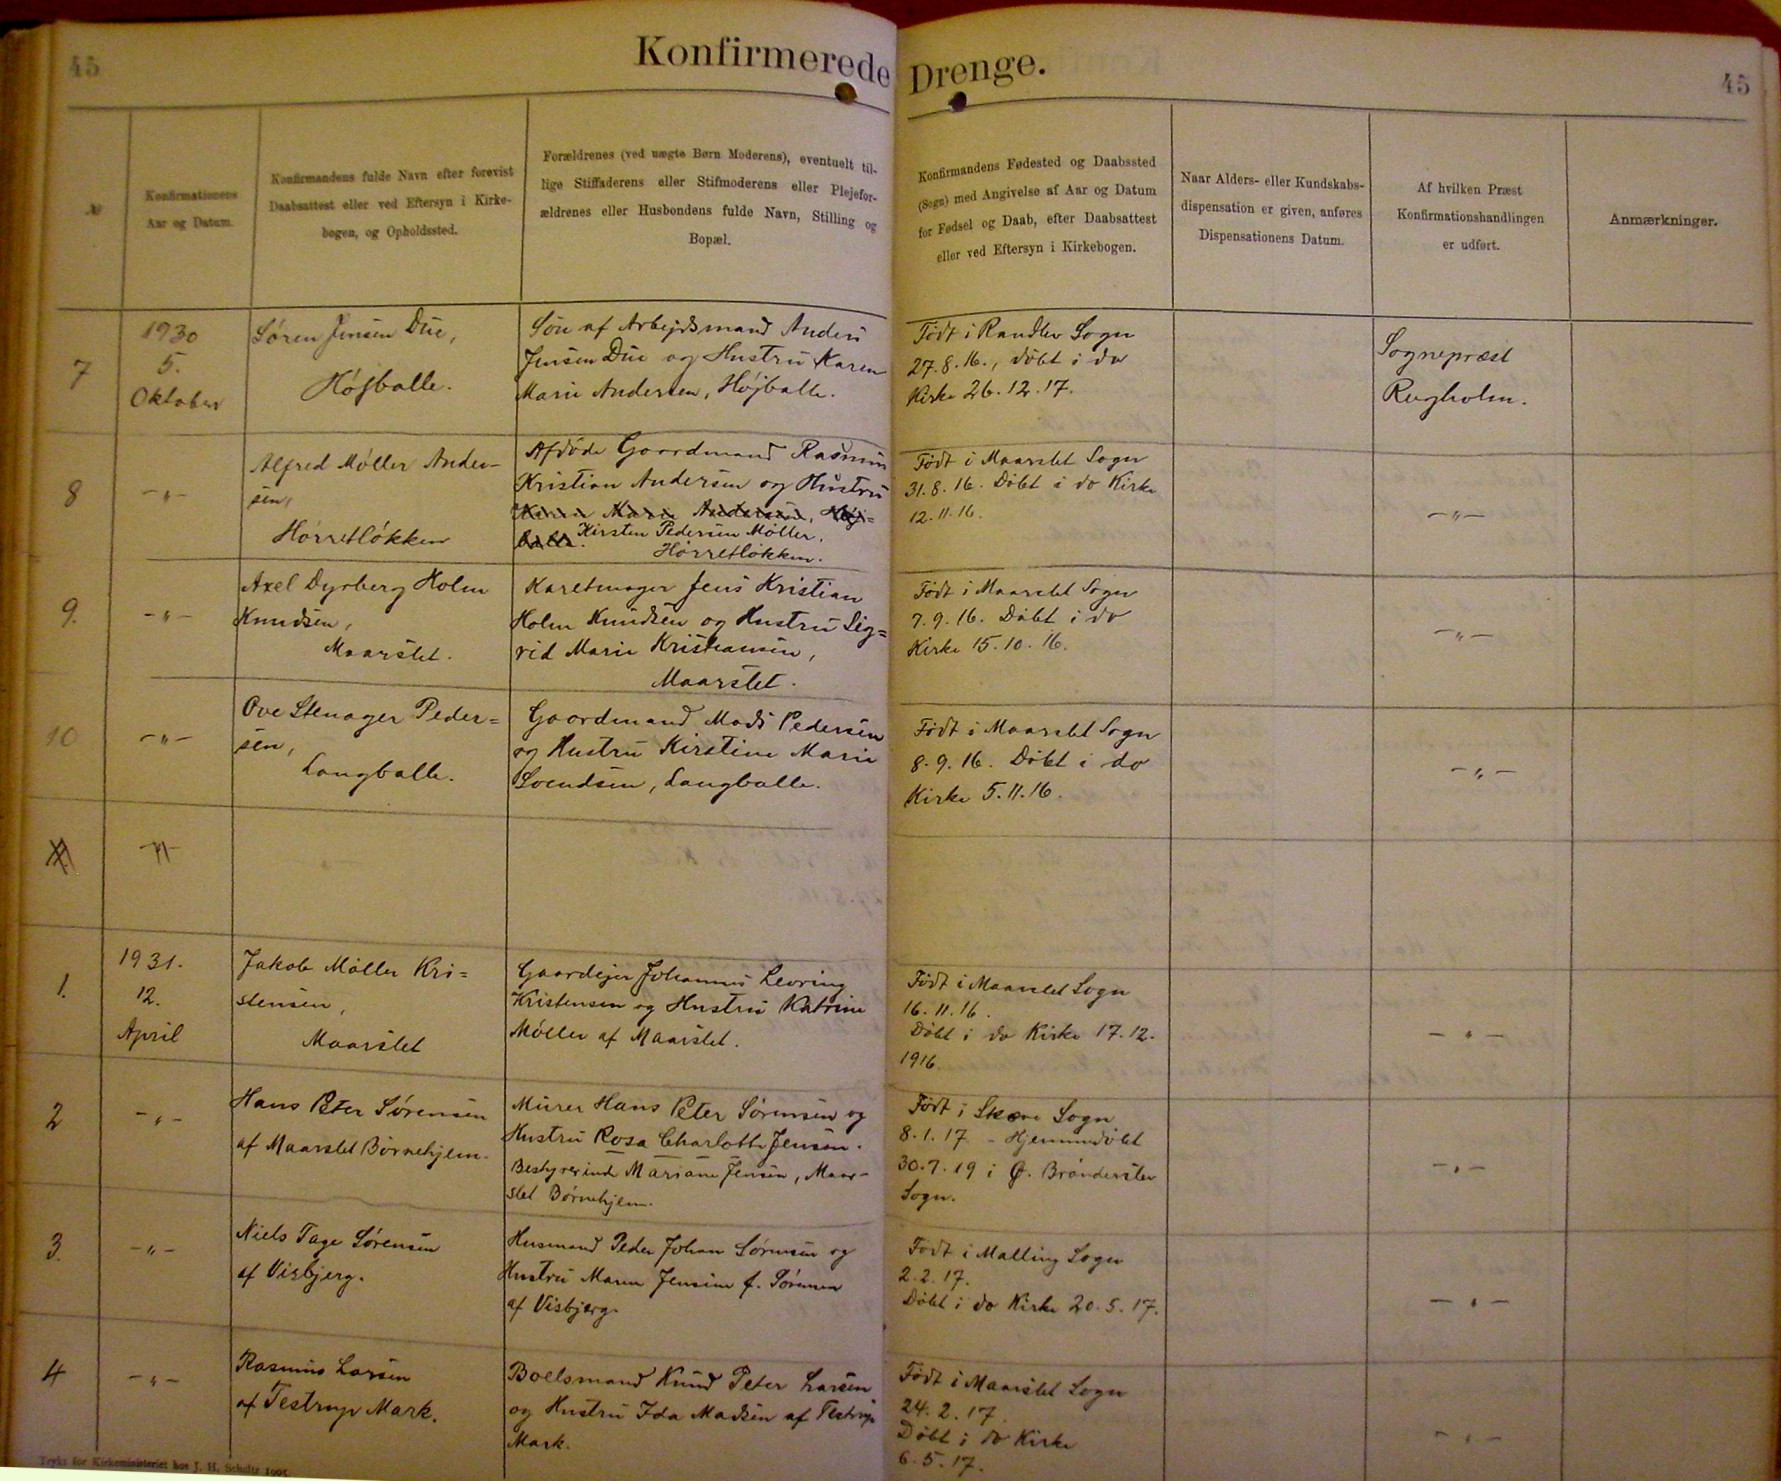 45
Konfirmerede Drenge.
45
№
Konfirmationens
Aar og Datum.
Konfirmandens fulde Navn efter forevist
Daabsattest eller ved Eftersyn i Kirke-
bogen, og Opholdssted.
Forældrenes (ved uægte Børn Moderens), eventuelt til-
lige Stiffaderens eller Stifmoderens eller Plejefor-
ældrenes eller Husbondens fulde Navn, Stilling og
Bopæl.
Konfirmandens Fødested og Daabssted
(Sogn) med Angivelse af Aar og Datum
for Fødsel og Daab, efter Daabsattest
eller ved Eftersyn i Kirkebogen.
Naar Alders- eller Kundskabs-
dispensation er given, anføres
Dispensationens Datum.
Af hvilken Præst
Konfirmationshandlingen
er udført.
Anmærkninger.
7
1930
5.
Oktober
Søren Jensen Due,
Højballe.
Søn af Arbejdsmand Anders
Jensen Due og Hustru Karen
Marie Andersen, Højballe.
Født i Randlev Sogn
27.8.16., døbt i do
Kirke 26.12.17.
Sognepræst
Rugholm.
8
-"-
Alfred Møller Ander-
sen,
Hørretløkken
Afdøde Gaardmand Rasmus
Kristian Andersen og Hustru
Karen Marie Andersen, Høj=
balle. Kirsten Pedersen Møller.
Hørretløkken.
Født i Maarslet Sogn
31.8.16. Døbt i do Kirke
12.11.16.
-"-
9.
-"-
Axel Dyrberg Holm
Knudsen,
Maarslet.
Karetmager Jens Kristian
Holm Knudsen og Hustru Sig=
rid Marie Kristiansen,
Maarslet.
Født i Maarslet Sogn
7.9.16. Døbt i do
Kirke 15.10.16.
-"-
10
-"-
Ove Stenager Peder=
sen,
Langballe.
Gaardmand Mads Pedersen
og Hustru Kirstine Marie
Svendsen, Langballe.
Født i Maarslet Sogn
8.9.16. Døbt i do
Kirke 5.11.16.
-"-
11
-"-
1.
1931.
12.
April
Jakob Møller Kri=
stensen,
Maarslet
Gaardejer Johannes Levring
Kristensen og Hustru Katrine
Møller af Maarslet.
Født i Maarslet Sogn
16.11.16.
Døbt i do Kirke 17.12.
1916.
-"-
2
-"-
Hans Peter Sørensen
af Maarslet Børnehjem.
Murer Hans Peter Sørensen og
Hustru Rosa Charlotte Jensen.
Bestyrerinde Mariane Jensen, Maar-
slet Børnehjem.
Født i Skæve Sogn
8.1.17 - Hjemmedøbt
30.7.19 i Ø. Brønderslev
Sogn.
-"-
3.
-"-
Niels Tage Sørensen
af Visbjerg.
Husmand Peder Johan Sørensen og
Hustru Maren Jensine f. Sørensen
af Visbjerg.
Født i Malling Sogn
2.2.17.
Døbt i do Kirke 20.5.17.
-"-
4
-"-
Rasmus Larsen
af Testrup Mark.
Boelsmand Knud Peter Larsen
og Hustru Ida Madsen af Testrup
Mark.
Født i Maarslet Sogn
24.2.17.
Døbt i do Kirke
6.5.17.
-"-
Trykt for Kirkeministeriet hos J. H. Schultz 1905.